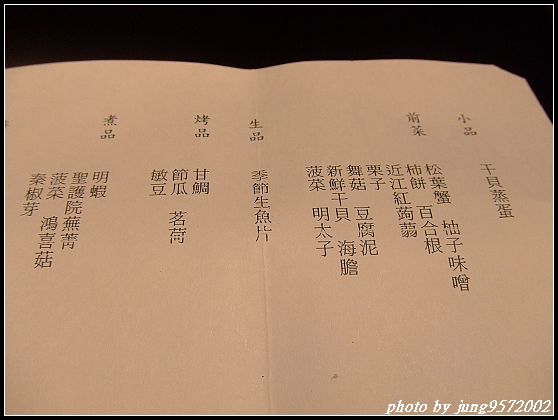 小品
干貝蒸蛋
前菜
松葉蟹 柚子味噌
柿餅 百合根
近江紅蒟蒻
栗子
舞菇 豆腐泥
新鮮干貝 海膽
菠菜 明太子
生品
季節生魚片
烤品
甘鯛
節瓜 茗荷
敏豆
煮品
明蝦
聖護院蕪菁
菠菜 鴻喜菇
秦椒芽
photo by jung9572002